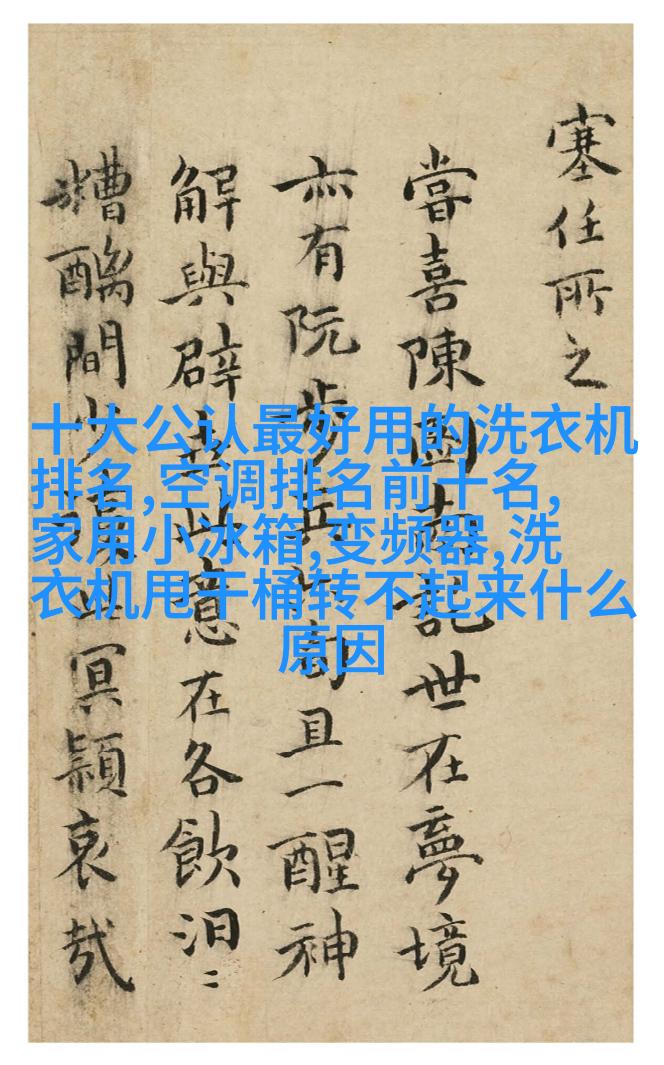 塞任所之
嘗喜陳圖南記世在夢境
亦有阮步兵且一醒神
解與辟此意在各飲汩〻
糟醨間少冥穎哀哉
十大公认最好用的洗衣机
排名,空调排名前十名,
家用小冰箱,变频器,洗
衣机甩干桶转不起来什么
原因